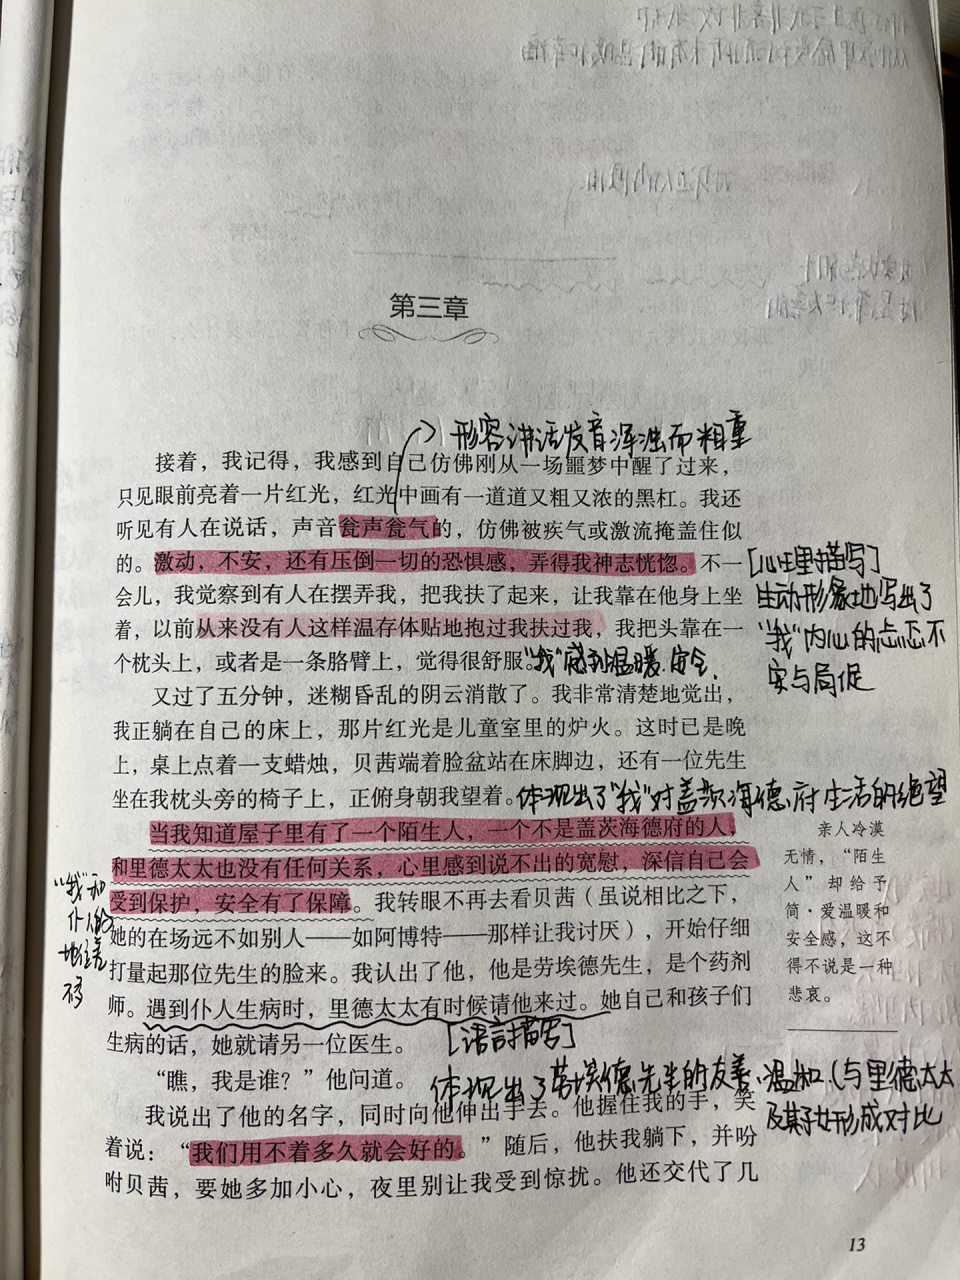 第三章
形容讲话发音浑浊而粗重
接着，我记得，我感到自己仿佛刚从一场噩梦中醒了过来，
只见眼前亮着一片红光，红光中画有一道道又粗又浓的黑杠。我还
听见有人在说话，声音瓮声瓮气的，仿佛被疾气或激流掩盖住似
的。激动，不安，还有压倒一切的恐惧感，弄得我神志恍惚。不一
会儿，我觉察到有人在摆弄我，把我扶了起来，让我靠在他身上坐
着，以前从来没有人这样温存体贴地抱过我扶过我，我把头靠在一
个枕头上，或者是一条胳臂上，觉得很舒服。
"我"感到温暖、安全.
[心理描写]
生动形象地写出了
"我"内心的忐忑不
安与局促
又过了五分钟，迷糊昏乱的阴云消散了。我非常清楚地觉出，
我正躺在自己的床上，那片红光是儿童室里的炉火。这时已是晚
上，桌上点着一支蜡烛，贝茜端着脸盆站在床脚边，还有一位先生
坐在我枕头旁的椅子上，正俯身朝我望着。
体现出了"我"对盖茨海德府生活的绝望
当我知道屋子里有了一个陌生人，一个不是盖茨海德府的人，
和里德太太也没有任何关系，心里感到说不出的宽慰，深信自己会
受到保护，安全有了保障。我转眼不再去看贝茜（虽说相比之下，
她的在场远不如别人——如阿博特——那样让我讨厌），开始仔细
打量起那位先生的脸来。我认出了他，他是劳埃德先生，是个药剂
师。遇到仆人生病时，里德太太有时候请他来过。她自己和孩子们
生病的话，她就请另一位医生。
亲人冷漠
无情，“陌生
人”却给予
简·爱温暖和
安全感，这不
得不说是一种
悲哀。
"我"和
仆人的
地位差
不多
[语言描写]
“瞧，我是谁？”他问道。
体现出了劳埃德先生的友善、温和.(与里德太太
及其子女形成对比
我说出了他的名字，同时向他伸出手去。他握住我的手，笑
着说：“我们用不着多久就会好的。”随后，他扶我躺下，并吩
咐贝茜，要她多加小心，夜里别让我受到惊扰。他还交代了几
13